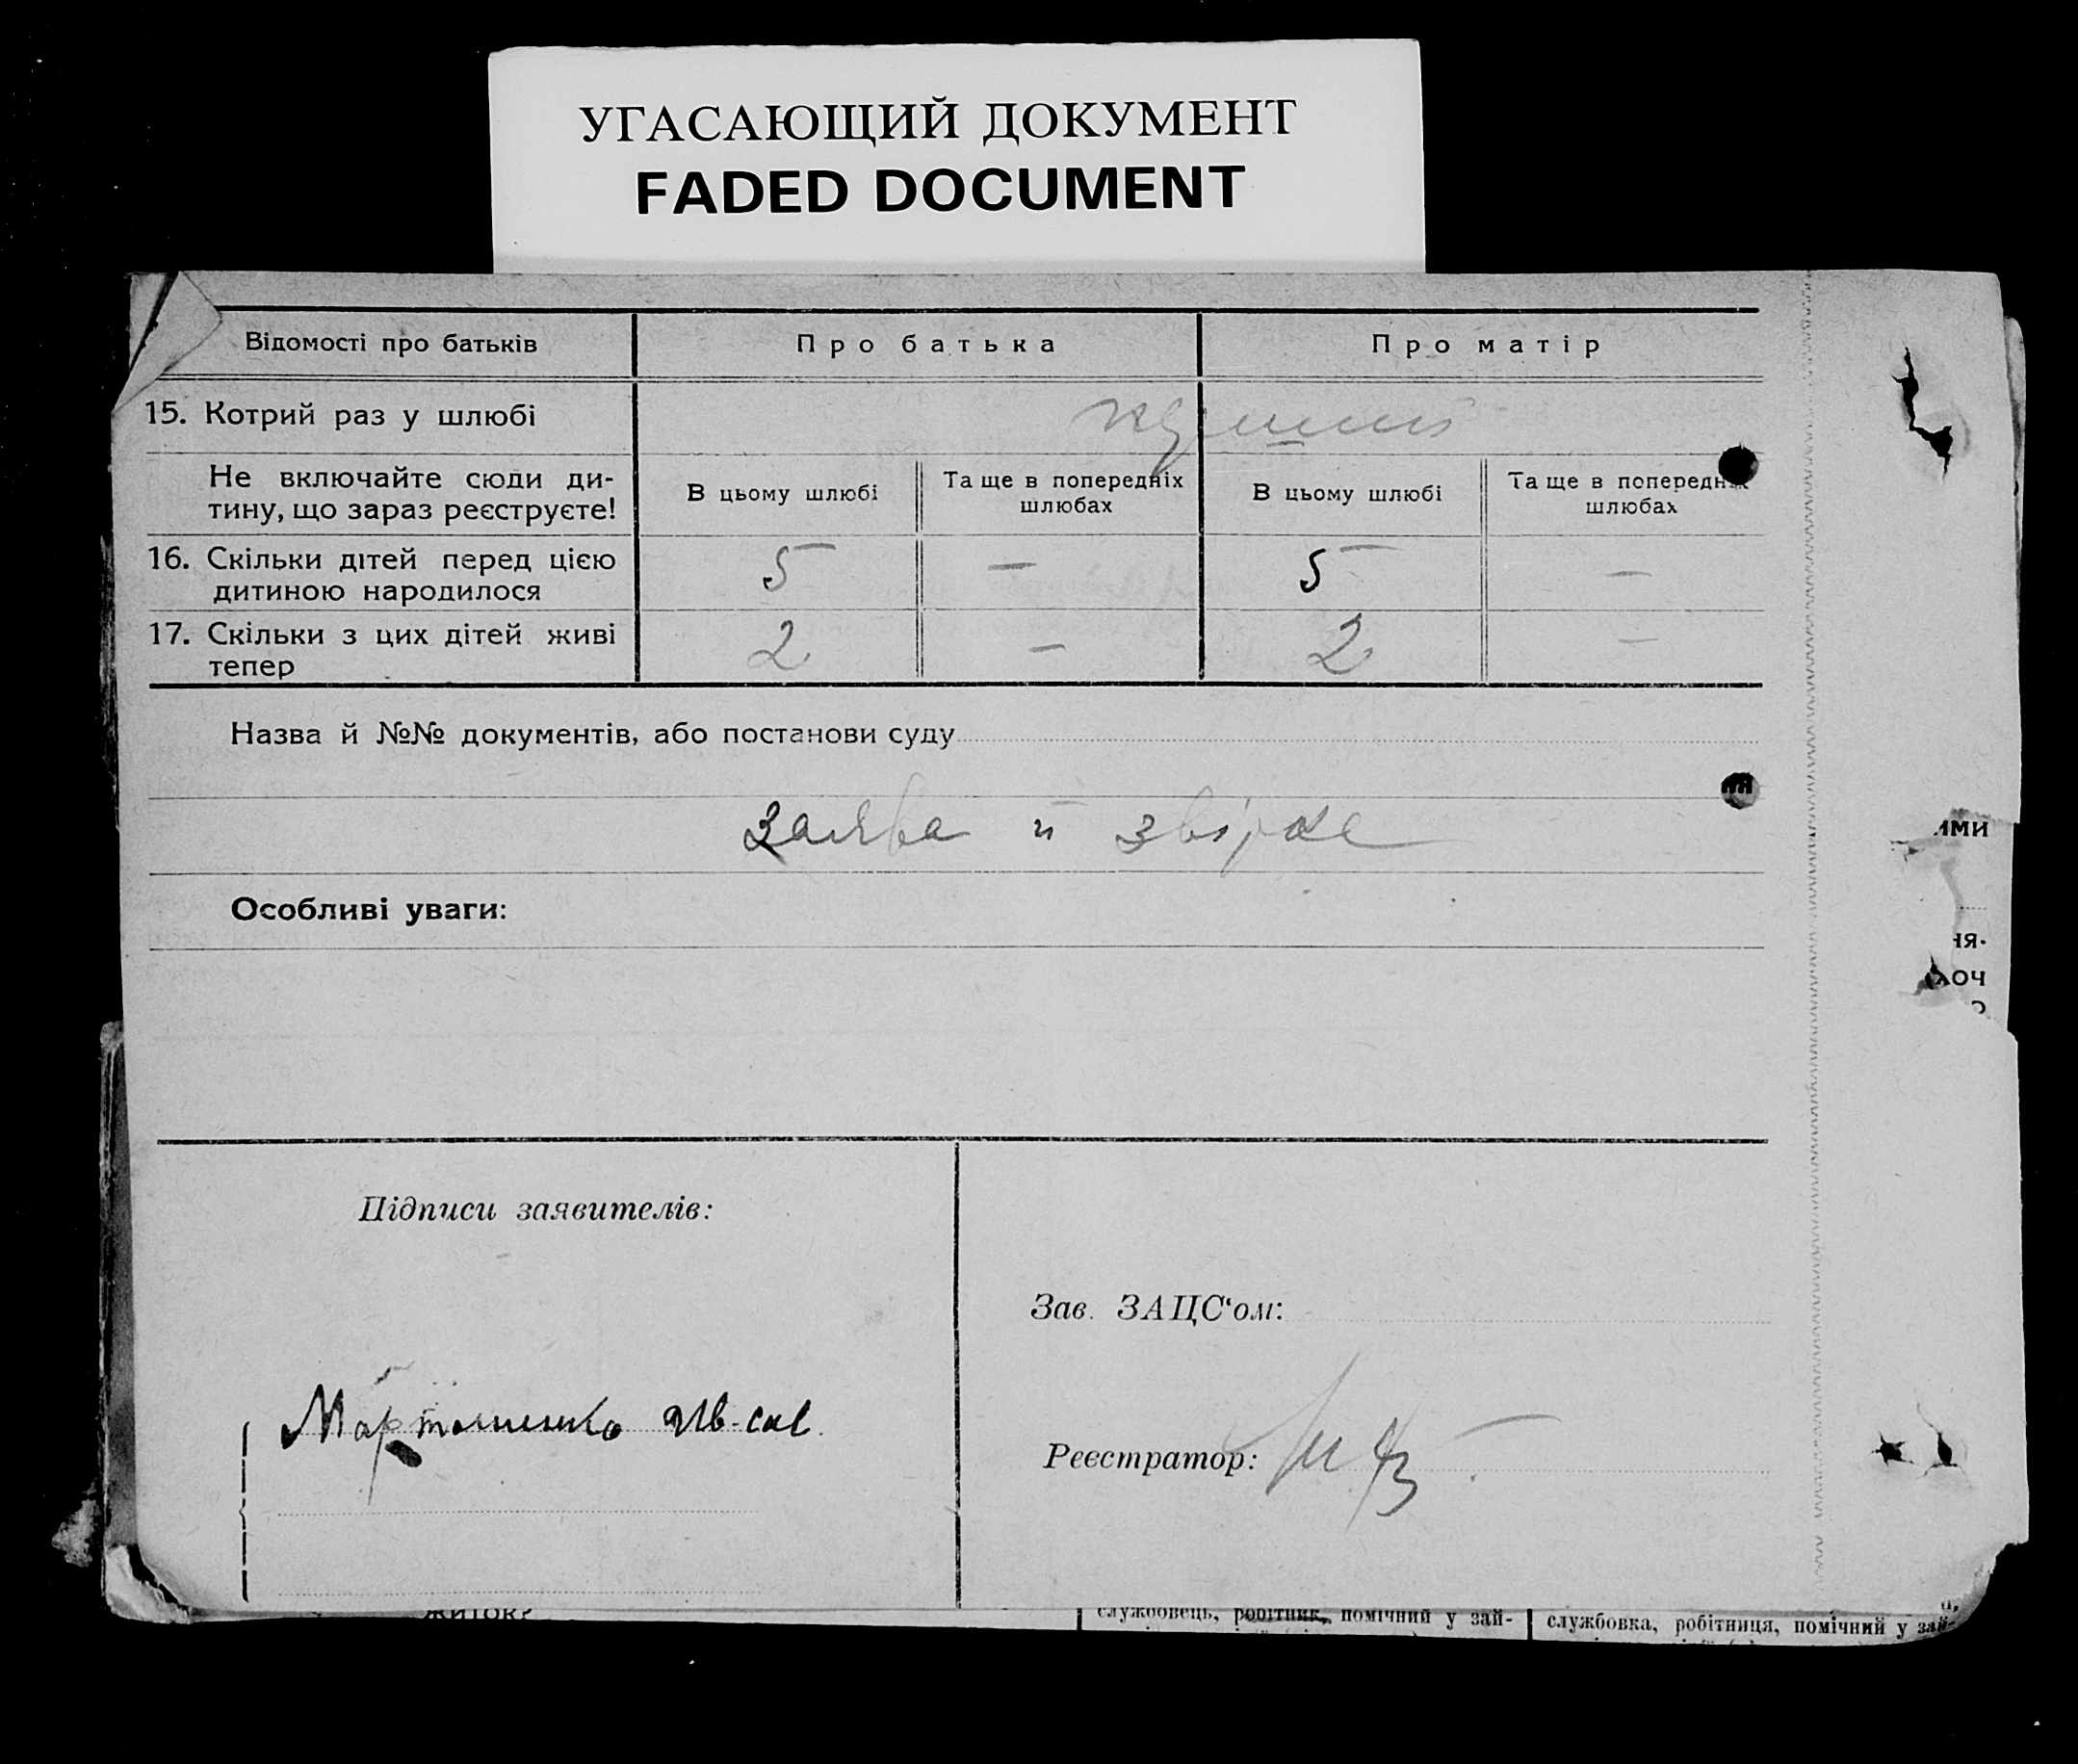 УГАСАЮЩИЙ ДОКУМЕНТ
FADED DOCUMENT
Відомості про батьків
Про батька
Про матір
15. Котрий раз у шлюбі
Не включайте сюди ди-
тину, що зараз реєструєте!
В цьому шлюбі
Та ще в попередніх
шлюбах
В цьому шлюбі
Та ще в попередніх
шлюбах
16. Скільки дітей перед цією
дитиною народилося
5
—
5
—
17. Скільки з цих дітей живі
тепер
2
—
2
—
Назва й №№ документів, або постанови суду
заява й
Особливі уваги:
Підписи заявителів:
Зав. ЗАЦС‘ом:
Реєстратор:
ими
ня-
хоч
житок?
службовець, робітник, помічний у зай-
службовка, робітниця, помічний у зай-